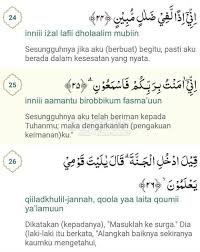 24
إِنِّيٓ إِذًا لَّفِى ضَلٰلٍ مُّبِيْنٍ ﴿٢٤﴾
inniii iżal lafii dholaalim mubiin
Sesungguhnya jika aku (berbuat) begitu, pasti aku
berada dalam kesesatan yang nyata.
25
إِنِّيٓ اٰمَنْتُ بِرَبِّكُمْ فَاسْمَعُوْنِ ۗ ﴿٢٥﴾
inniii aamantu birobbikum fasma'uun
Sesungguhnya aku telah beriman kepada
Tuhanmu; maka dengarkanlah (pengakuan
keimanan)ku."
26
قِيْلَ ادْخُلِ الْجَنَّةَ ۗ قَالَ يٰلَيْتَ قَوْمِيْ
يَعْلَمُوْنَ ۙ ﴿٢٦﴾
qiiladkhulil-jannah, qoola yaa laita qoumii
ya'lamuun
Dikatakan (kepadanya), "Masuklah ke surga." Dia
(laki-laki itu) berkata, "Alangkah baiknya sekiranya
kaumku mengetahui,